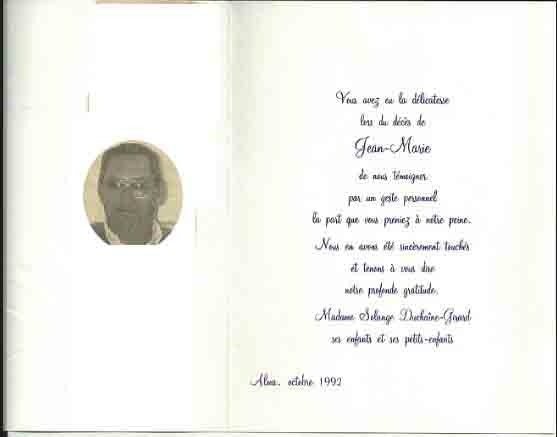 Vous avez eu la délicatesse
lors du décès de
Jean-Marie
de nous témoigner
par un geste personnel
la part que vous preniez à notre peine.
Nous en avons été sincèrement touchés
et tenons à vous dire
notre profonde gratitude.
Madame Solange Duchaîne-Girard
ses enfants et ses petits-enfants
Alma, octobre 1992